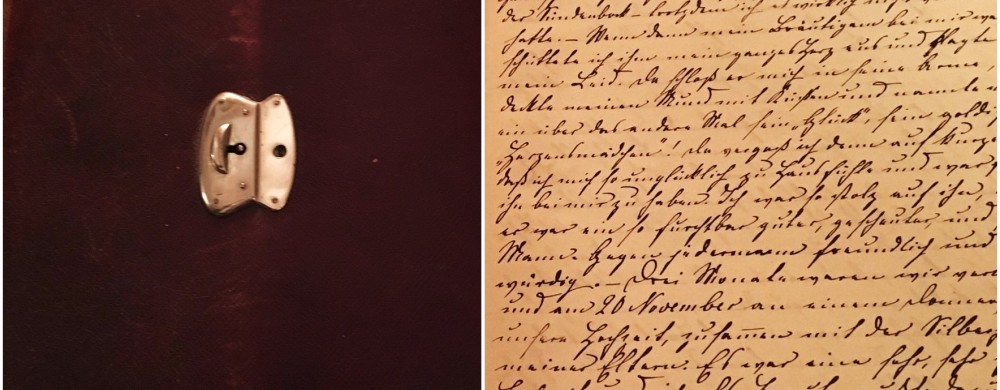 der Sündenbock – trotzdem ich es wirklich nicht
hatte. – Wenn dann mein Bräutigam bei mir war
schüttete ich ihm mein ganzes Herz aus und klagte
mein Leid. Da schloß er mich in seine Arme,
deckte meinen Mund mit Küssen und nannte
ein über das andere Mal sein „Glück“, sein goldi
„Herzensmädchen“! Da vergaß ich denn auf kurze
daß ich mich so unglücklich zu Haus fühlte und war
ihn bei mir zu haben. Ich war so stolz auf ihn,
es war ein so furchtbar guter, gescheuter, und
Mann. Gegen jedermann freundlich und
würdig. – Drei Monate waren wir verl
und am 20 November an einem Donner
unsere Hochzeit, zusammen mit der Silber
meiner Eltern. Es war eine sehr, sehr